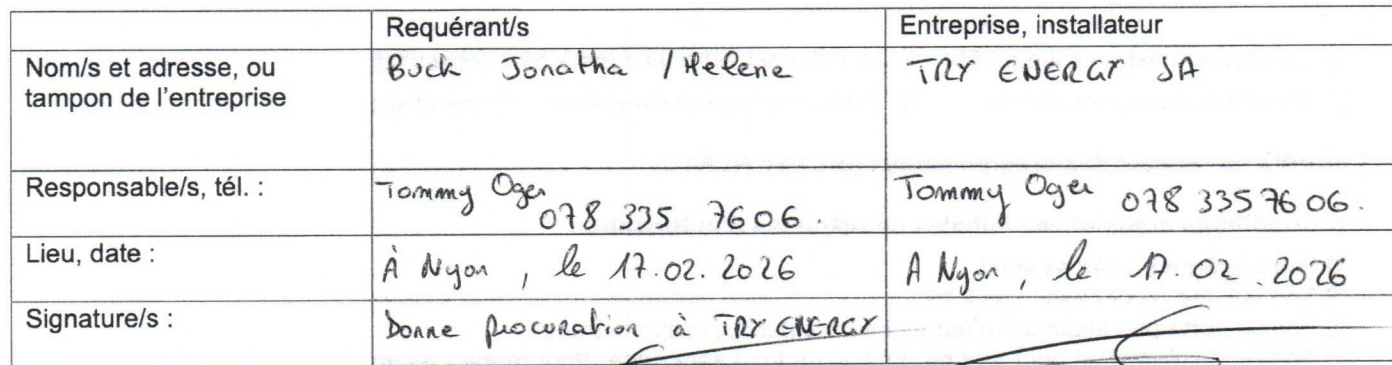 Requérant/s Entreprise, installateur
Nom/s et adresse, ou tampon de l'entreprise Buck Jonatha / Helene TRY ENERGY SA
Responsable/s, tél. : Tommy Oger 078 335 76 06. Tommy Oger 078 335 76 06.
Lieu, date : À Nyon, le 17.02.2026 A Nyon, le 17.02.2026
Signature/s : Donne procuration à TRY ENERGY